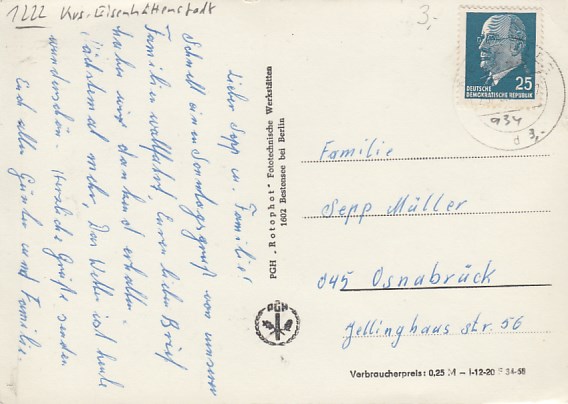 1222 Krs. Eisenhüttenstadt
3,-
Lieber Sepp u. Familie!
Schnell einen Sonntagsgruß von unserer
Familienwallfahrt, Euren lieben Brief
haben wir dankend erhalten.
Nächstmal mehr, Das Wetter ist heute
wunderschön. Herzliche Grüße senden
Euch allen Günter und Familie.
PGH „Rotophot" Fototechnische Werkstätten
1602 Bestensee bei Berlin
PGH
DEUTSCHE 25
DEMOKRATISCHE REPUBLIK
934
d 3,-
Familie
Sepp Müller
045 Osnabrück
Jellinghaus str. 56
Verbraucherpreis: 0,25 M – I-12-20 34-68